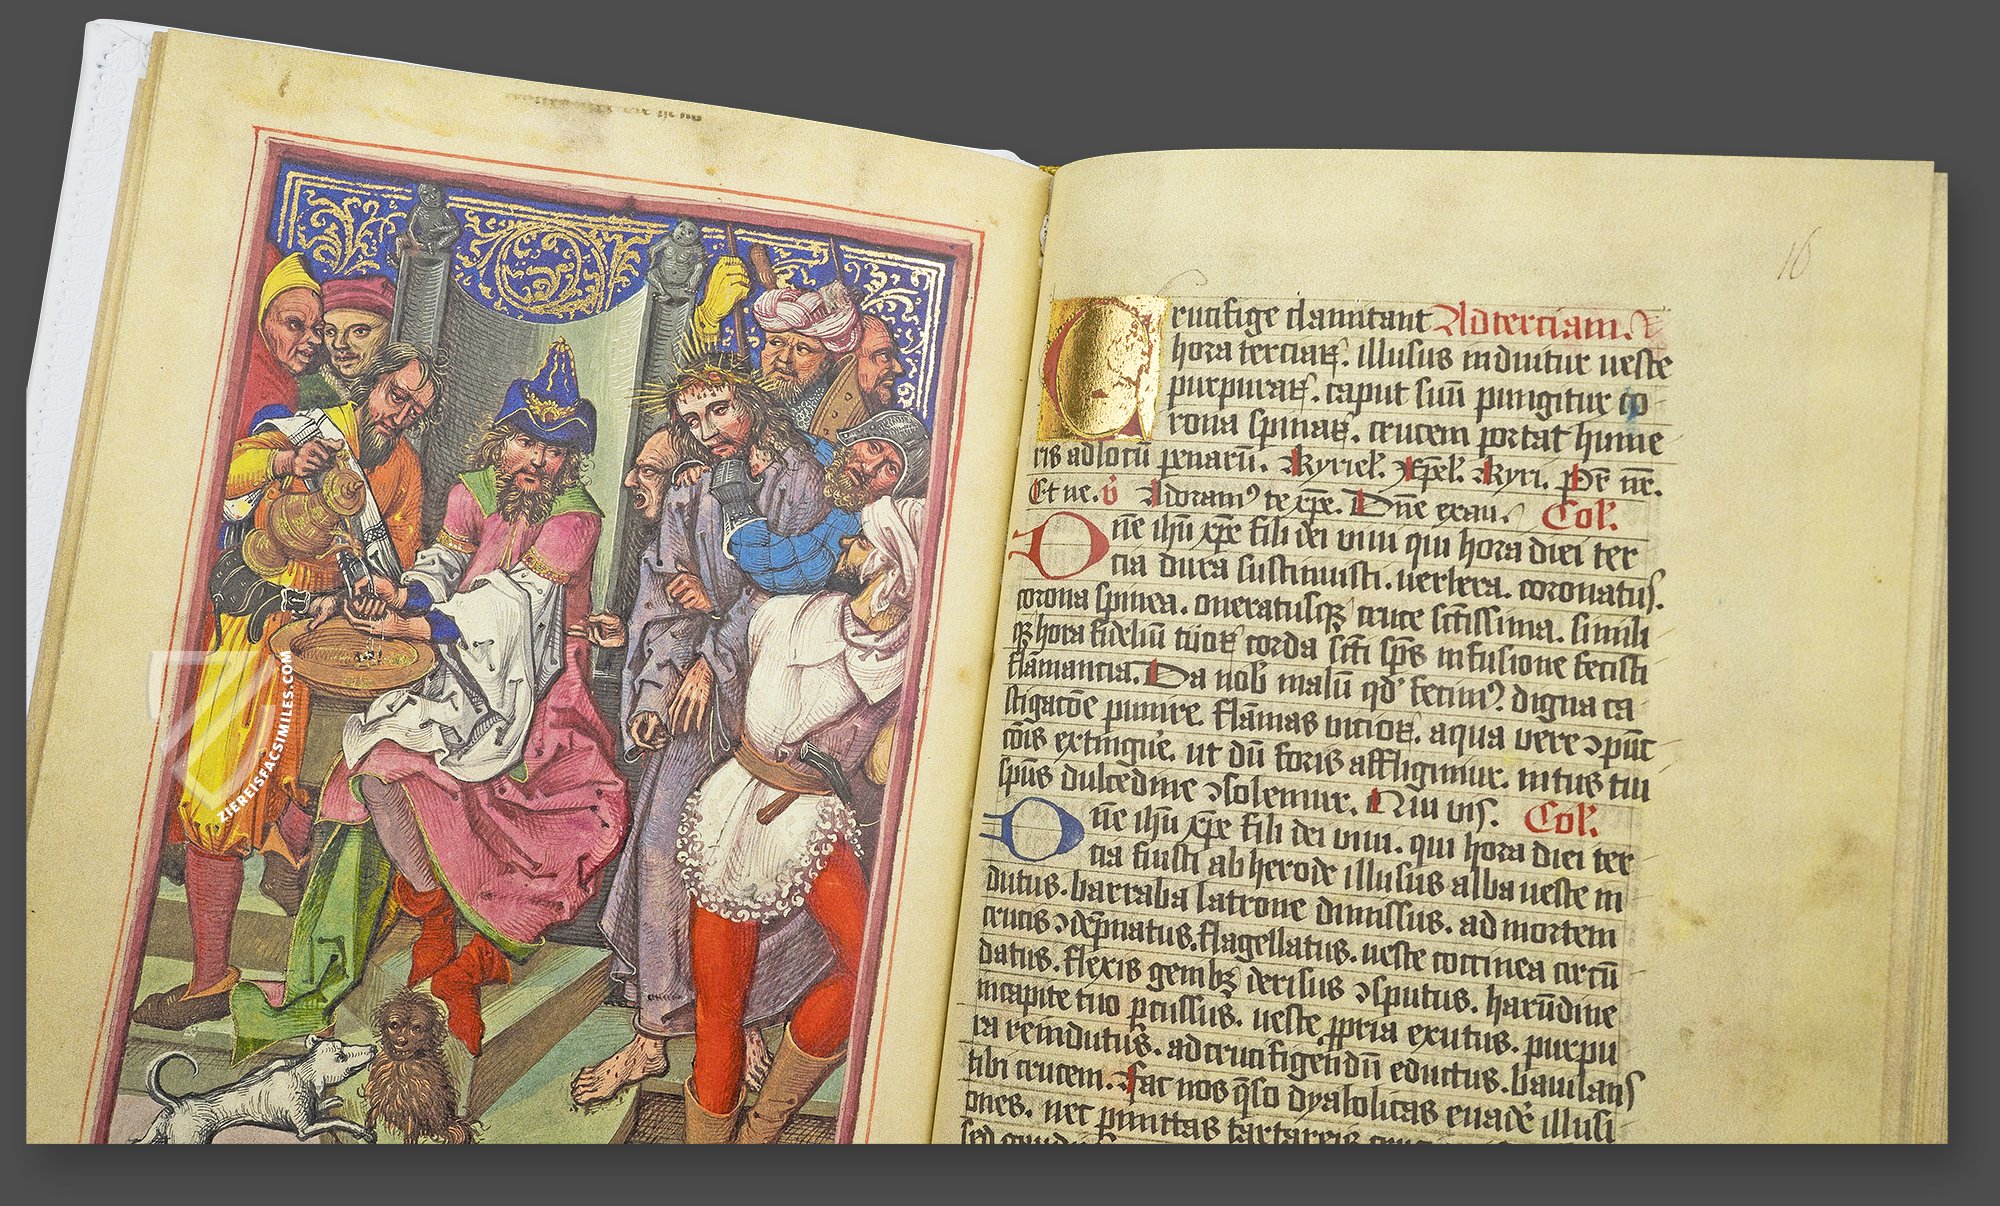 ZIEREISFACSIMILES.COM
16
Crucifige clamitant Ad terciam. R
hora terciaꝝ. illusus induitur veste
purpuraꝝ. caput suū pungitur co
rona spineaꝝ. crucem portat hume
ris ad locū penarū. Kyriel'. Xp̄el'. Kyri. Pr̄ nr̄.
Et ne. v̄ Adoramꝰ te xp̄e. Dn̄e exau. Col'.
Dn̄e ihū xp̄e fili dei viui qui hora diei ter
cia dura sustinuisti. verbera. coronatus.
corona spinea. oneratusqꝫ cruce sc̄tissima. simili
qꝫ hora fideliū tuoꝝ corda sc̄ti sp̄s infusione fecisti
flamancia. Da nob' malū qd' fecimꝰ digna ca
stigatōe punire. flāmas vicioꝝ. aqua vere ↄpūc
cōis extingue. ut dū foris affligimur. intus tui
sp̄us dulcedine ↄsolemur. Qui viuis. Col'.
Dn̄e ihū xp̄e fili dei viui. qui hora diei ter
cia fuisti ab herode illusus alba veste in
dutus. barraba latrone dimissus. ad mortem
crucis ↄdēpnatus. flagellatus. veste coccinea circū
datus. flexis genibꝫ derisus ↄsputus. harūdine
in capite tuo ꝑcussus. veste ꝓpria exutus. purpu
ra reindutus. ad crucifigendū eductus. baiulans
tibi crucem. Fac nos q̄so dyabolicas euade' illusi
ones. nec pmittas tartareis
sed